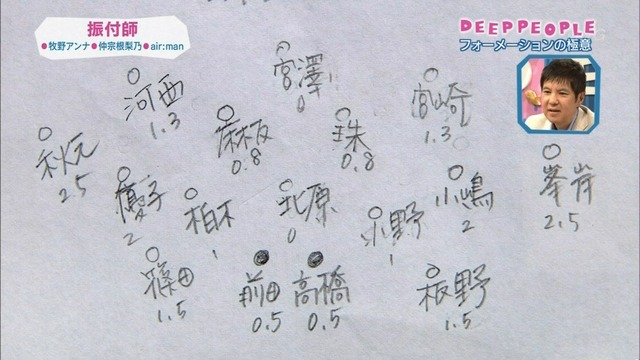 振付師
●牧野アンナ ●仲宗根梨乃 ●air:man
DEEP PEOPLE
フォーメーションの極意
宮澤
0
河西
1.3
宮崎
1.3
麻板
0.8
珠
0.8
秋元
2.5
峯岸
2.5
優子
2
柏木
1
北原
0
小野
1
小嶋
2
篠田
1.5
前田
0.5
高橋
0.5
板野
1.5